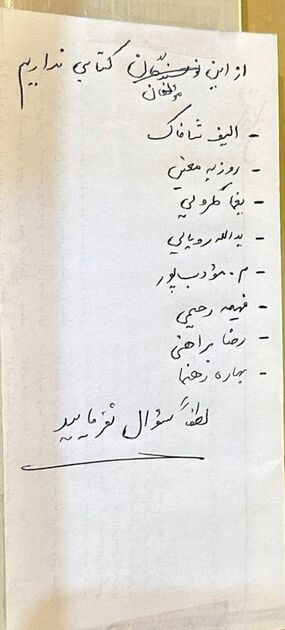 از این نویسندگان کتابی نداریم
مؤلفان
- الیف شافاک
- روزبه معین
- یغما گلرویی
- یدالله رویایی
- م. مؤدب‌پور
- فهیمه رحیمی
- رضا براهنی
- بهاره رهنما
لطفاً سؤال نفرمایید